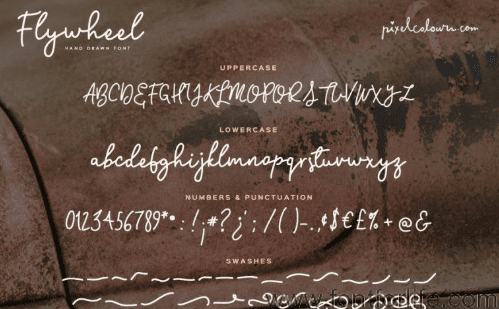 Flywheel
pixelcolours.com
HAND DRAWN FONT
UPPERCASE
ABCDEFGHIJKLMNOPQRSTUVWXYZ
LOWERCASE
abcdefghijklmnopqrstuvwxyz
NUMBERS & PUNCTUATION
0123456789*•:!¡#?¿;/()-.,¢$€£%+@&
SWASHES